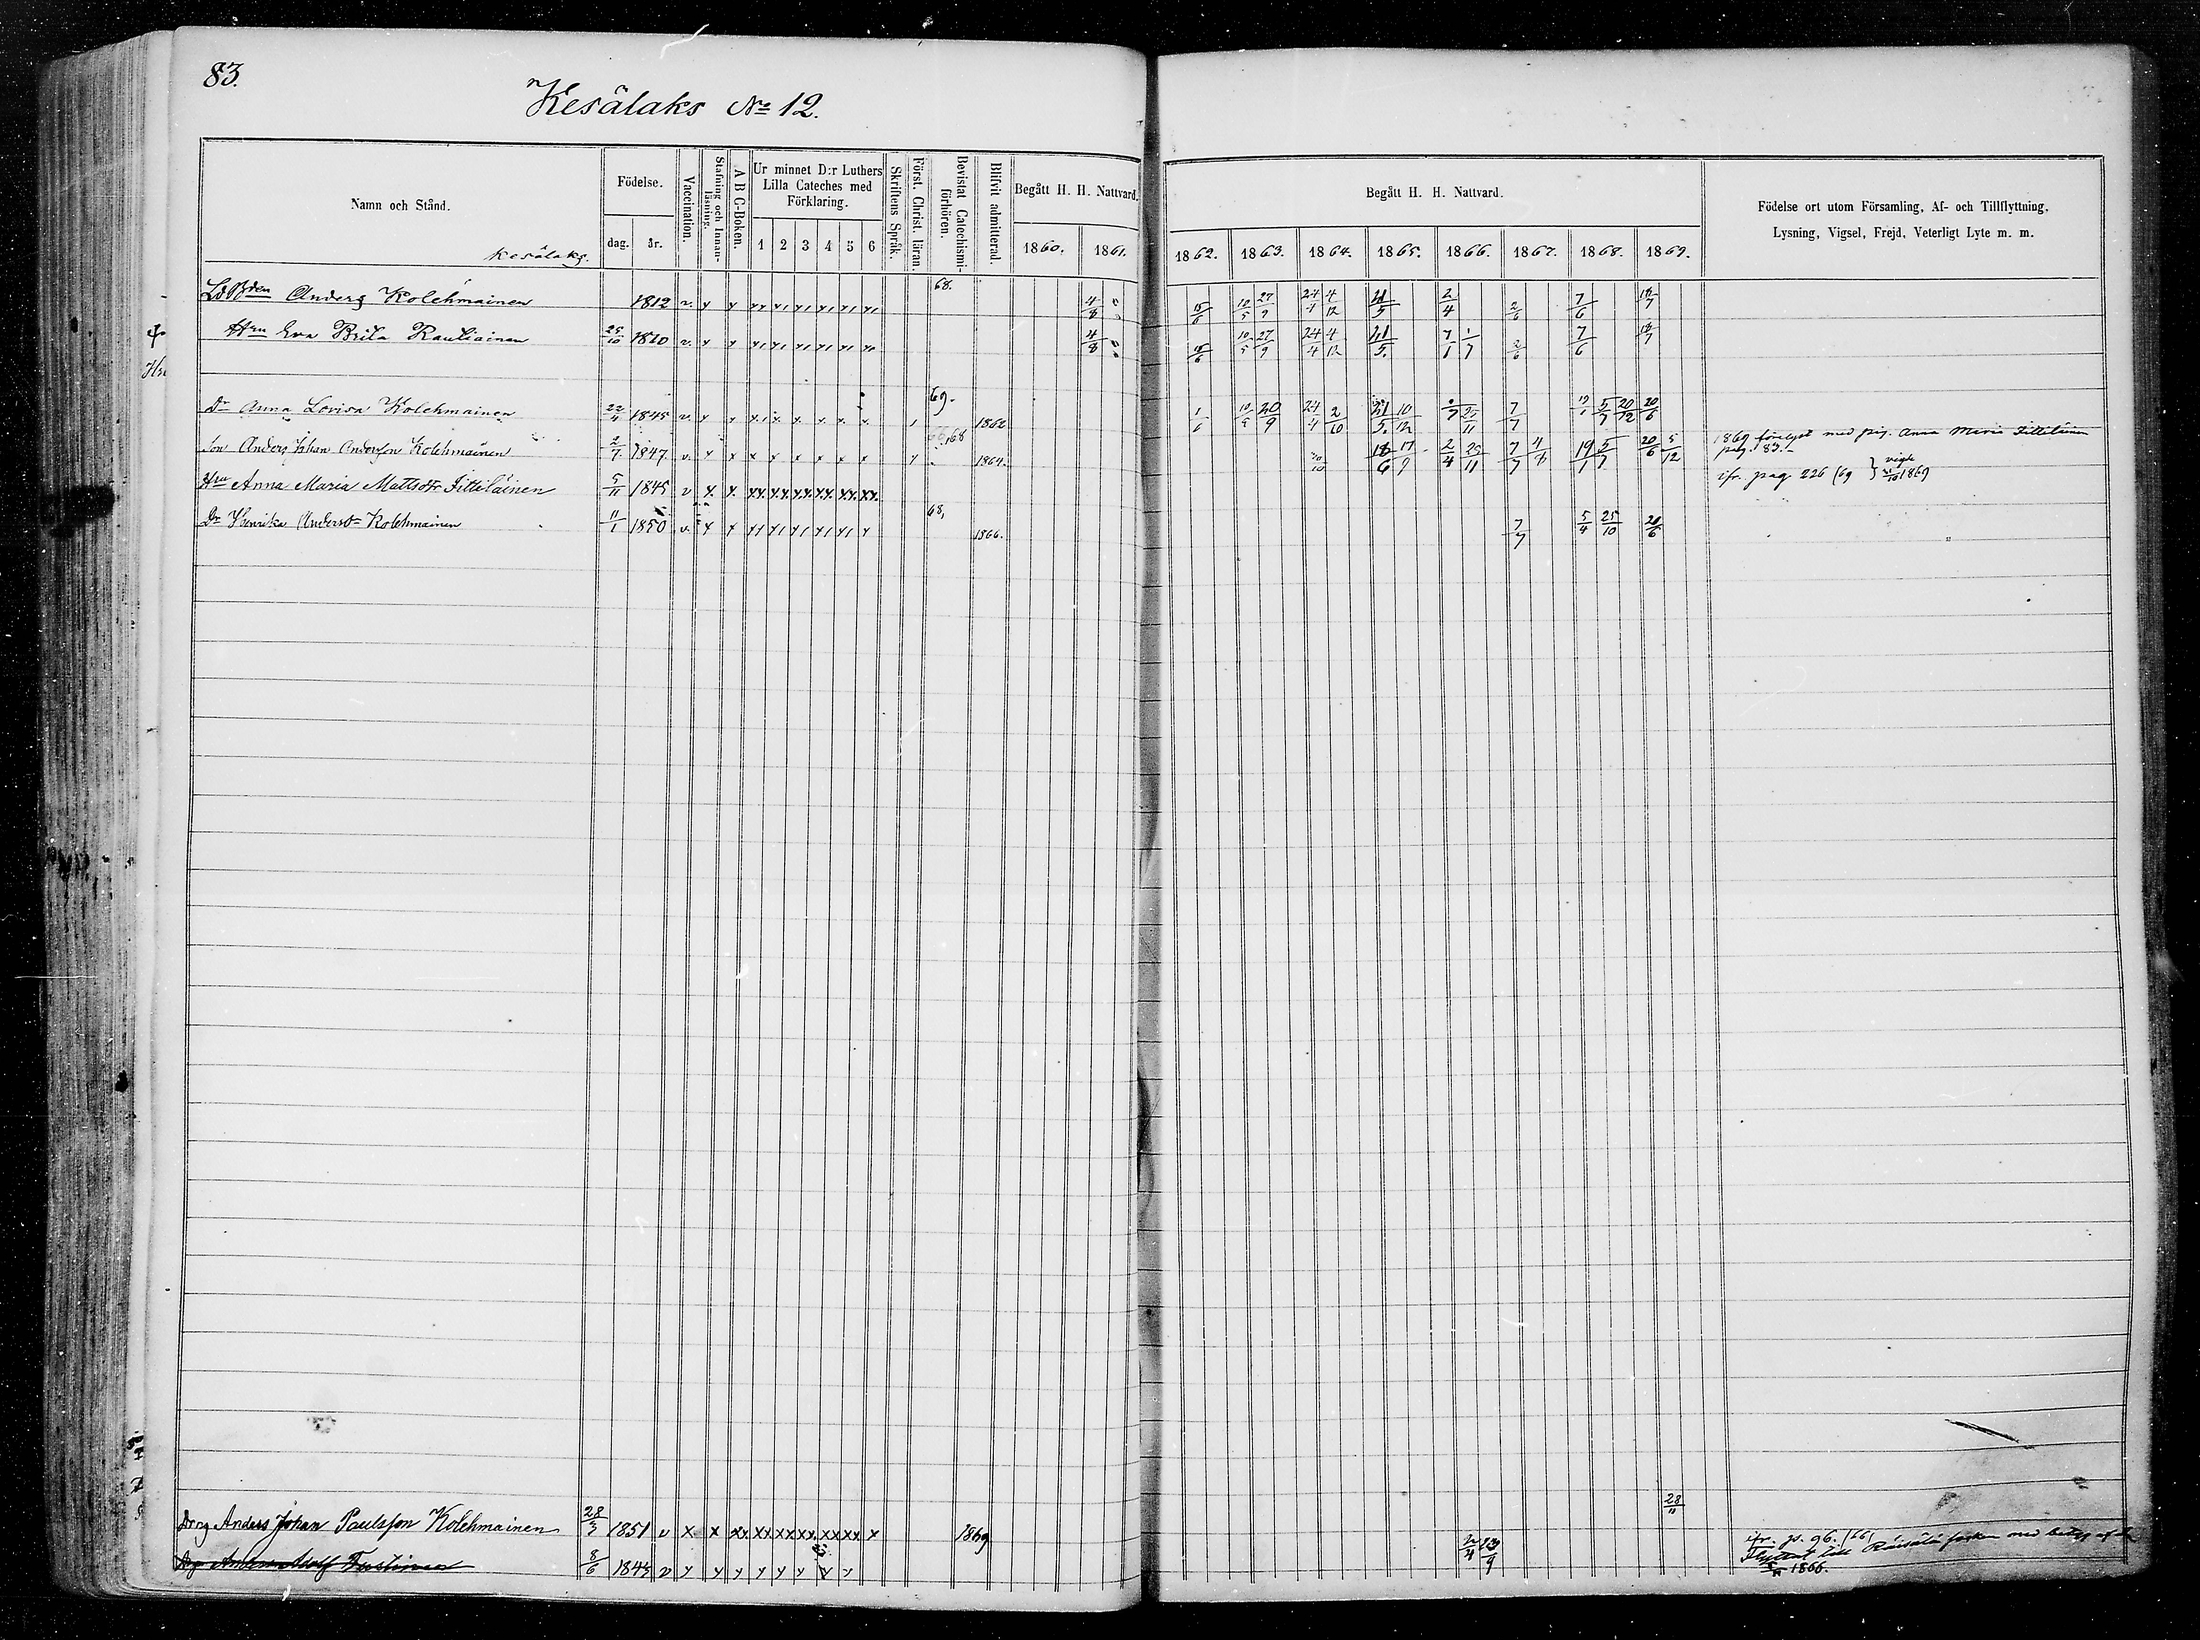 83.
Kesälaks No 12.
Namn och Stånd.
Kesälaks.
Födelse.
dag. år.
Vaccination.
Stafning och Innanläsning.
A B C-Boken.
Ur minnet D:r Luthers Lilla Cateches med Förklaring.
1 2 3 4 5 6
Skriftens Språk.
Först. Christ. läran.
Bevistat Catechismiförhören.
Blifvit admitterad.
Begått H. H. Nattvard.
1860. 1861.
Begått H. H. Nattvard.
1862. 1863. 1864. 1865. 1866. 1867. 1868. 1869.
Födelse ort utom Församling, Af- och Tillflyttning,
Lysning, Vigsel, Frejd, Veterligt Lyte m. m.
Anders Kolehmainen 1812 v. 68. 4/8 15/6 10/5 27/9 24/4 4/12 21/5 2/4 2/6 7/6 18/7
Hru Eva Brita Rautiainen 25/10 1820 v. 4/8 15/6 10/5 27/9 24/4 4/12 21/5. 7/1 1/7 2/6 7/6 18/7
Dr Anna Lovisa Kolehmainen 22/4 1845 v. 69. 1862 1/6 10/5 20/9 24/4 2/10 21/5. 10/12 25/11 7/7 19/1 5/7 20/12 20/6
Son Anders Johan Andersson Kolehmainen 2/7 1847 v. 68 1864. 18/6 17/9 2/4 25/11 7/7 4/8 19/1 5/7 20/6 5/12 1869 förlyst med pig. Anna Maria Tittiläinen
pag. 83.
Hru Anna Maria Mattsdtr Tittiläinen 5/11 1845 v ifr. pag 226 (69 } vigde 1869
Dr Henrika Andersd. Kolehmainen 11/1 1850 v. 68, 1866. 7/7 5/4 25/10 20/6
Drng Anders Johan Paulsson Kolehmainen 28/3 1851 v 1869 28/11 ifr. p. 96. (66)
8/6 1845 v 2/4 23/9 Flyttat till Räisälä med betyg af
1866.